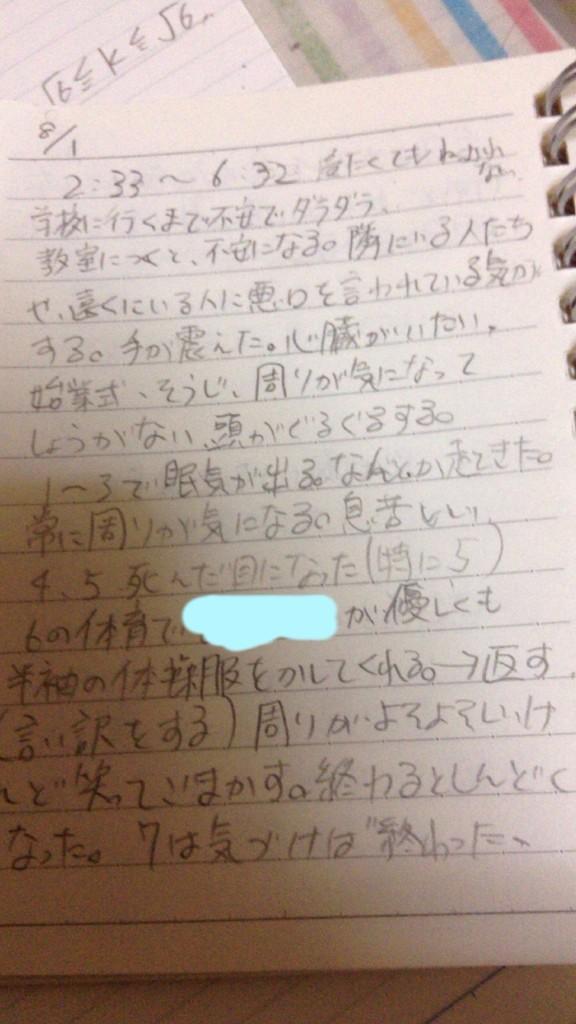 √6≦k≦√6
8/1
2:33～6:32 寝たくてもねむれ
ない
学校に行くまで不安でダラダラ、
教室につくと、不安になる。隣にいる人たち
や、遠くにいる人に悪口を言われている気が
する。手が震えた。心臓がいたい。
始業式、そうじ、周りが気になって
しょうがない 頭がぐるぐるする。
1～3で眠気が出る。なんとか起きてきた。
常に周りが気になる。息苦しい
4、5 死んだ目になった(特に5)
6の体育で が優しくも
半袖の体操服をかしてくれる。→返す
(言い訳をする)周りがよそよそしいけ
ど笑ってごまかす。終わるとしんどく
なった。7は気づけば終わった、